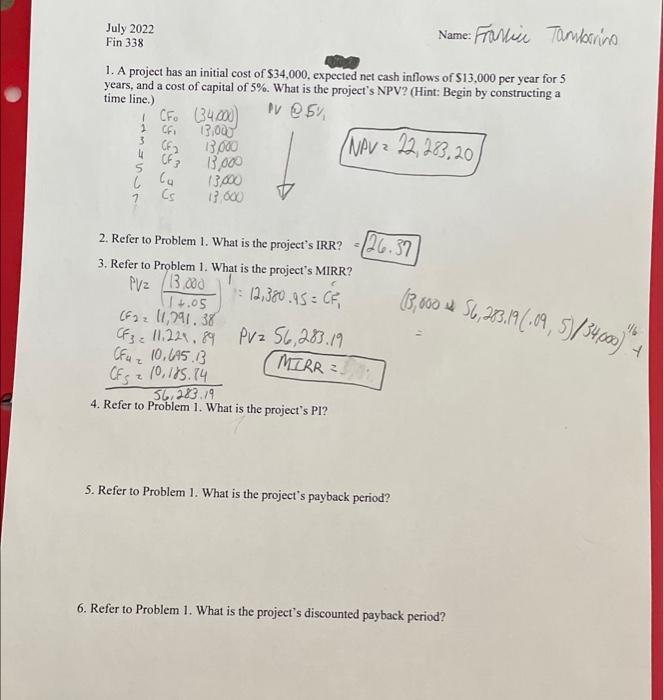 July 2022
Fin 338
Name: Frankie Tamborino
1. A project has an initial cost of $34,000, expected net cash inflows of $13,000 per year for 5
years, and a cost of capital of 5%. What is the project's NPV? (Hint: Begin by constructing a
time line.)
PV @ 5%
1 CF0 (34,000)
2 CF1 13,000
3 CF2 13,000
4 CF3 13,000
5 C4 13,000
6 C5 13,000
7
NPV = 22,283.20
2. Refer to Problem 1. What is the project's IRR? = 26.37
3. Refer to Problem 1. What is the project's MIRR?
PV= (13,000 / 1+.05)^1 = 12,380.95 = CF1
CF2 = 11,791.38
CF3 = 11,229.89 PV= 56,283.19
CF4 = 10,695.13
CF5 = 10,185.84
56,283.19
MIRR =
(13,000 56,283.19(.09, 5)/34,000)^1/6 -1
=
4. Refer to Problem 1. What is the project's PI?
5. Refer to Problem 1. What is the project's payback period?
6. Refer to Problem 1. What is the project's discounted payback period?